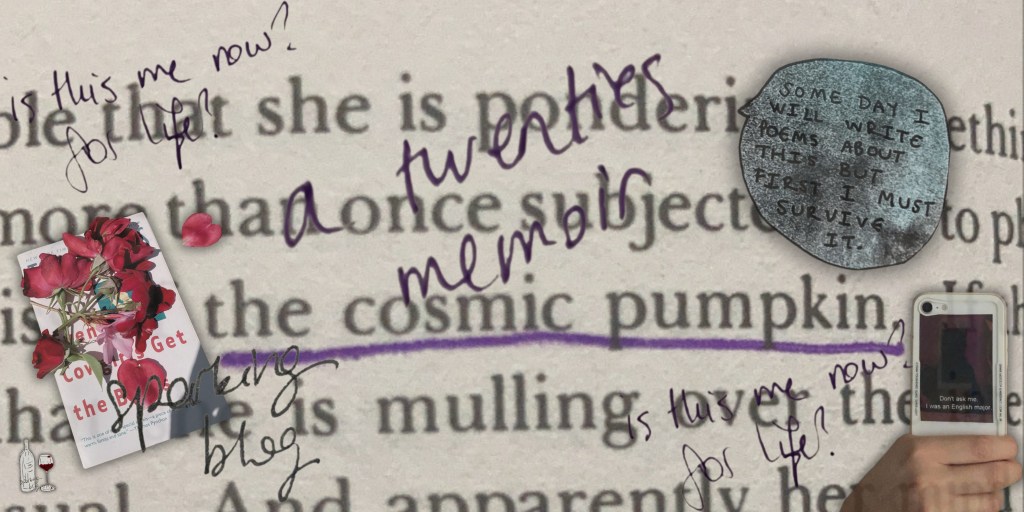 is this me now?
for life?
ble that she is ponderi
ethi
a twenties
memoir
SOME DAY I
WILL WRITE
POEMS ABOUT
THIS BUT
FIRST I MUST
SURVIVE
IT.
more than once subjecte
to pl
is
the cosmic pumpkin. If h
Get
the B
sparkling
blog
tha
e is mulling over the
is this me now?
for life?
Don't ask me
I was an English major
sual. And apparently her mind